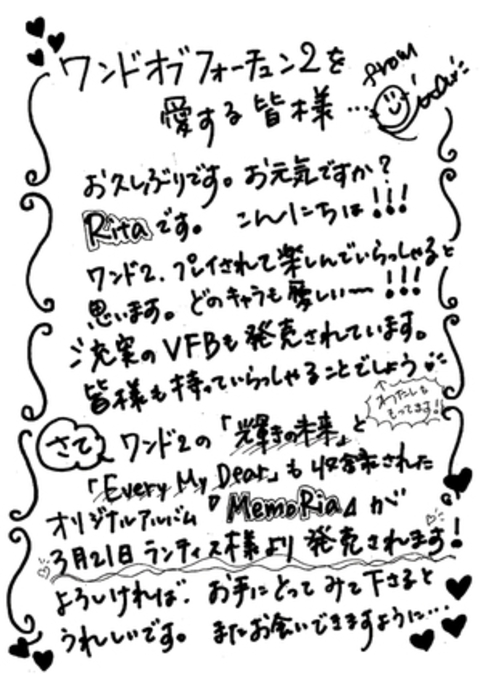 ワンドオブフォーチュン2を
愛する皆様… from Rita
お久しぶりです。お元気ですか?
Ritaです。 こんにちは!!!
ワンド2、プレイされて楽しんでいらっしゃると
思います。どのキャラも愛しい〜!!!
充実のVFBも発売されています。
皆様も持っていらっしゃることでしょう
↑わたしも
もってます!
さて ワンド2の「輝きの未来」と
「Every My Dear」も収録された
オリジナルアルバム『MemoRia』が
3月21日ランティス様より発売されます!
よろしければ、お手にとってみて下さると
うれしいです。またお会いできますように…